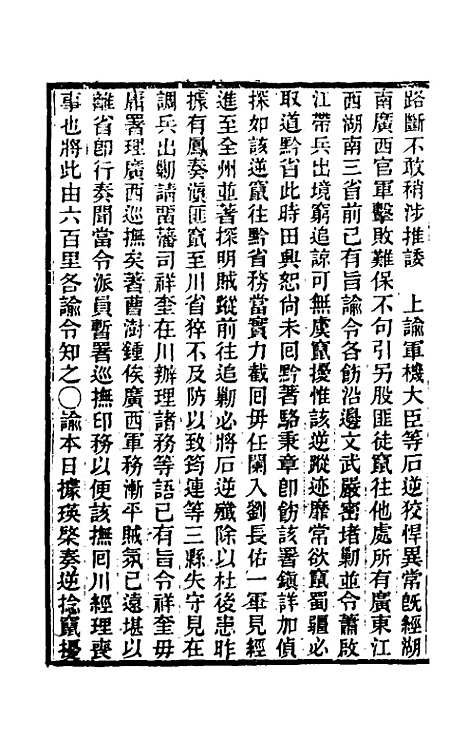 路斷不敢稍涉推諉　上諭軍機大臣等石逆狡悍異常既經湖
南廣西官軍擊敗難保不句引另股匪徒竄往他處所有廣東江
西湖南三省前已有旨諭令各飭沿邊文武嚴密堵勦並令蕭啟
江帶兵出境窮追諒可無虞竄擾惟該逆蹤迹靡常欲竄蜀疆必
取道黔省此時田興恕尚未回黔著駱秉章即飭該署鎮詳加偵
探如該逆竄往黔省務當實力截回毋任闌入劉長佑一軍見經
進至全州並著探明賊蹤前往追勦必將石逆殲除以杜後患昨
據有鳳奏滇匪竄至川省猝不及防以致筠連等三縣失守見在
調兵出勦請畱藩司祥奎在川辦理諸務等語已有旨令祥奎毋
庸署理廣西巡撫矣著曹澍鍾俟廣西軍務漸平賊氛已遠堪以
離省即行奏聞當令派員暫署巡撫印務以便該撫回川經理喪
事也將此由六百里各諭令知之○諭本日據瑛棨奏逆捻竄擾